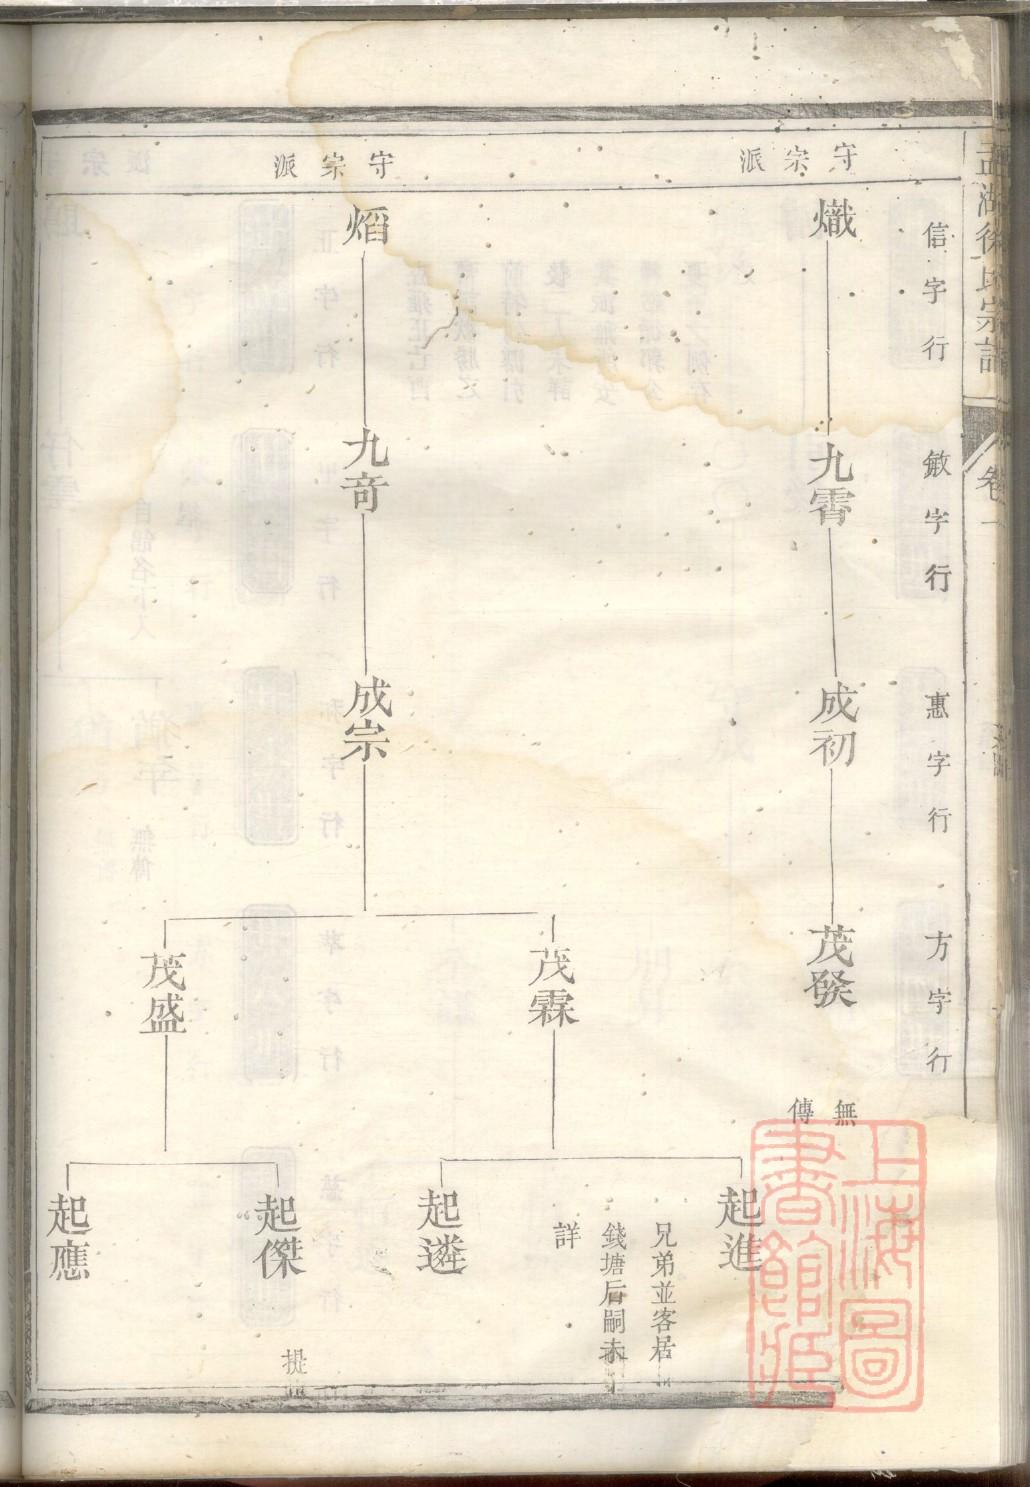 孟湖徐氏宗譜
卷一
信字行
敏字行
惠字行
方字行
守宗派
熾
九霄
成初
茂發
無傳
守宗派
熖
九竒
成宗
茂霖
茂盛
起進
兄弟並客居
錢塘后嗣未
詳
起遴
起傑
提
起應
上海圖
書館藏